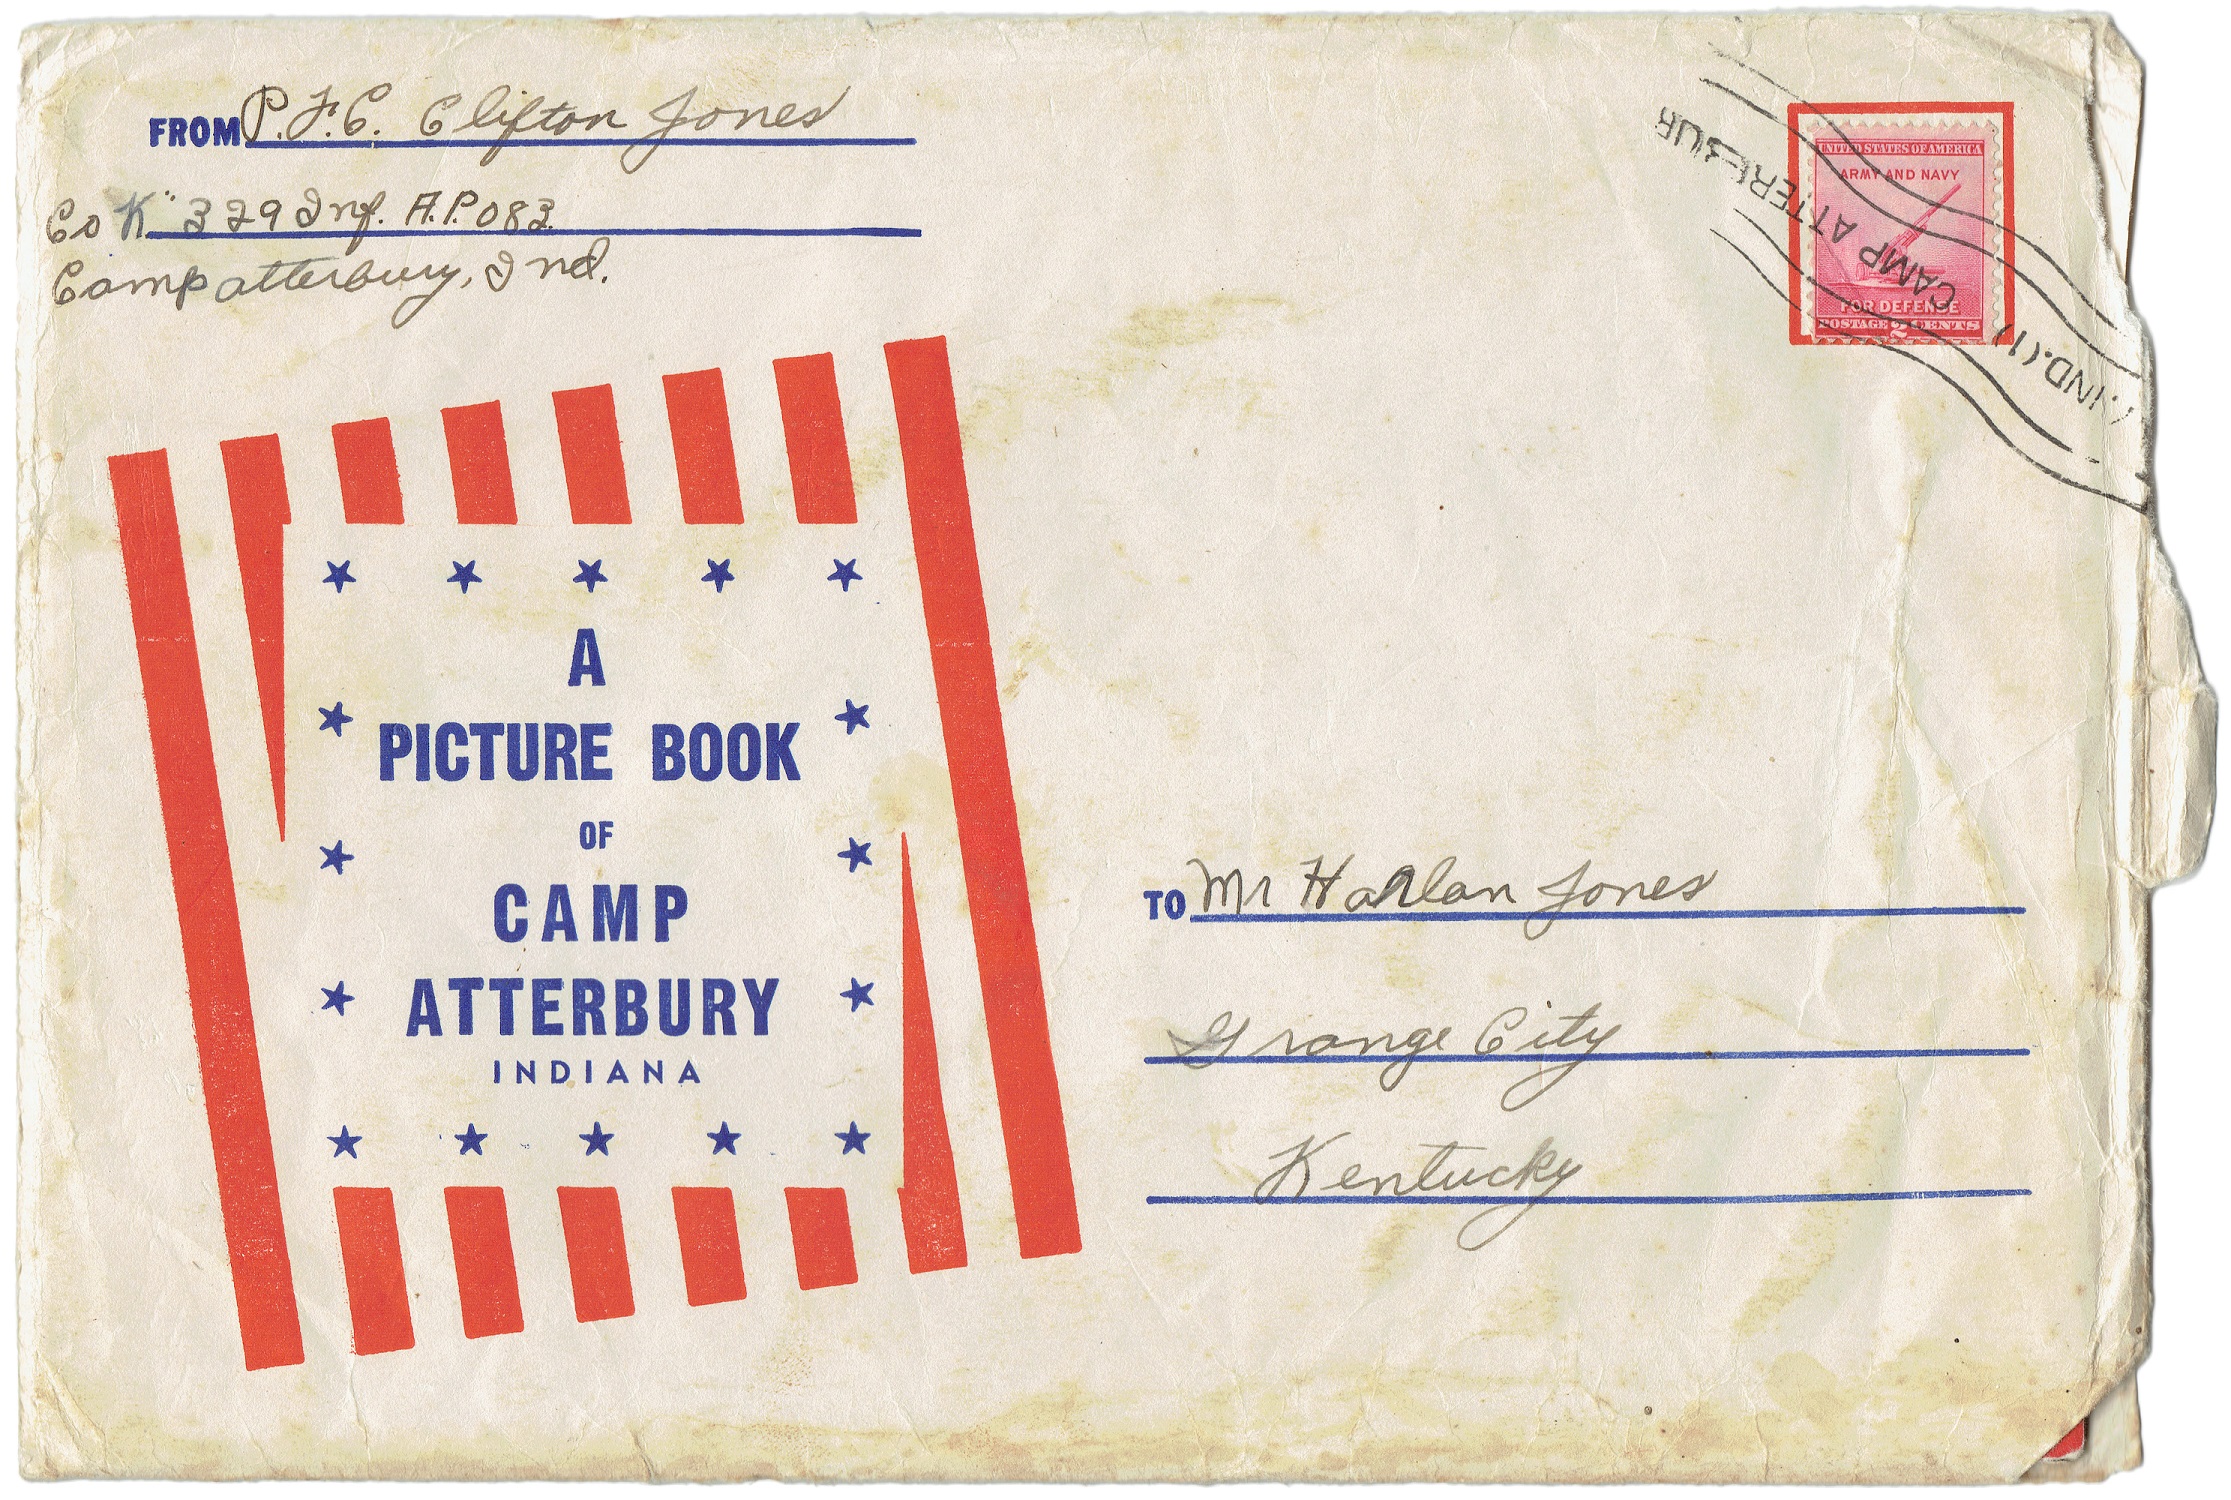 FROM P.F.C. Clifton Jones
Co "K" 329 Inf. A.P.O 83.
Camp atterbury, Ind.
UNITED STATES OF AMERICA
ARMY AND NAVY
FOR DEFENSE
POSTAGE 2 CENTS
CAMP ATTERBUR
Y, IND. (1)
A
PICTURE BOOK
OF
CAMP
ATTERBURY
INDIANA
TO Mr Harlan Jones
Grange City
Kentucky